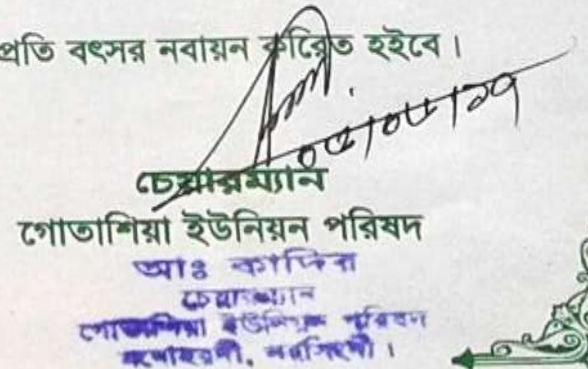 প্রতি বৎসর নবায়ন করিতে হইবে।
চেয়ারম্যান
গোতাশিয়া ইউনিয়ন পরিষদ
আঃ কাদির
চেয়ারম্যান
গোতাশিয়া ইউনিয়ন পরিষদ
মনোহরদী, নরসিংদী।